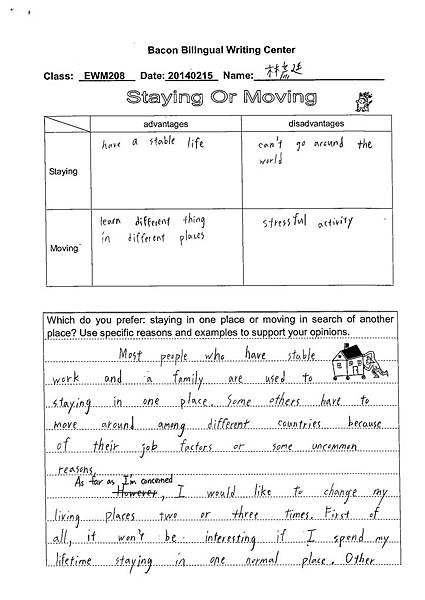 Bacon Bilingual Writing Center
Class: EWM208 Date: 20140215 Name: 林
Staying Or Moving
advantages disadvantages
Staying
have a stable life
can't go around the
world
Moving
learn different thing
in different places
stressful activity
Which do you prefer: staying in one place or moving in search of another
place? Use specific reasons and examples to support your opinions.
Most people who have stable
work and a family are used to
staying in one place. Some others have to
move around among different countries because
of their job factors or some uncommon
reasons.
As far as I'm concerned
However, I would like to change my
living places two or three times. First of
all, it won't be interesting if I spend my
lifetime staying in one normal place. Other